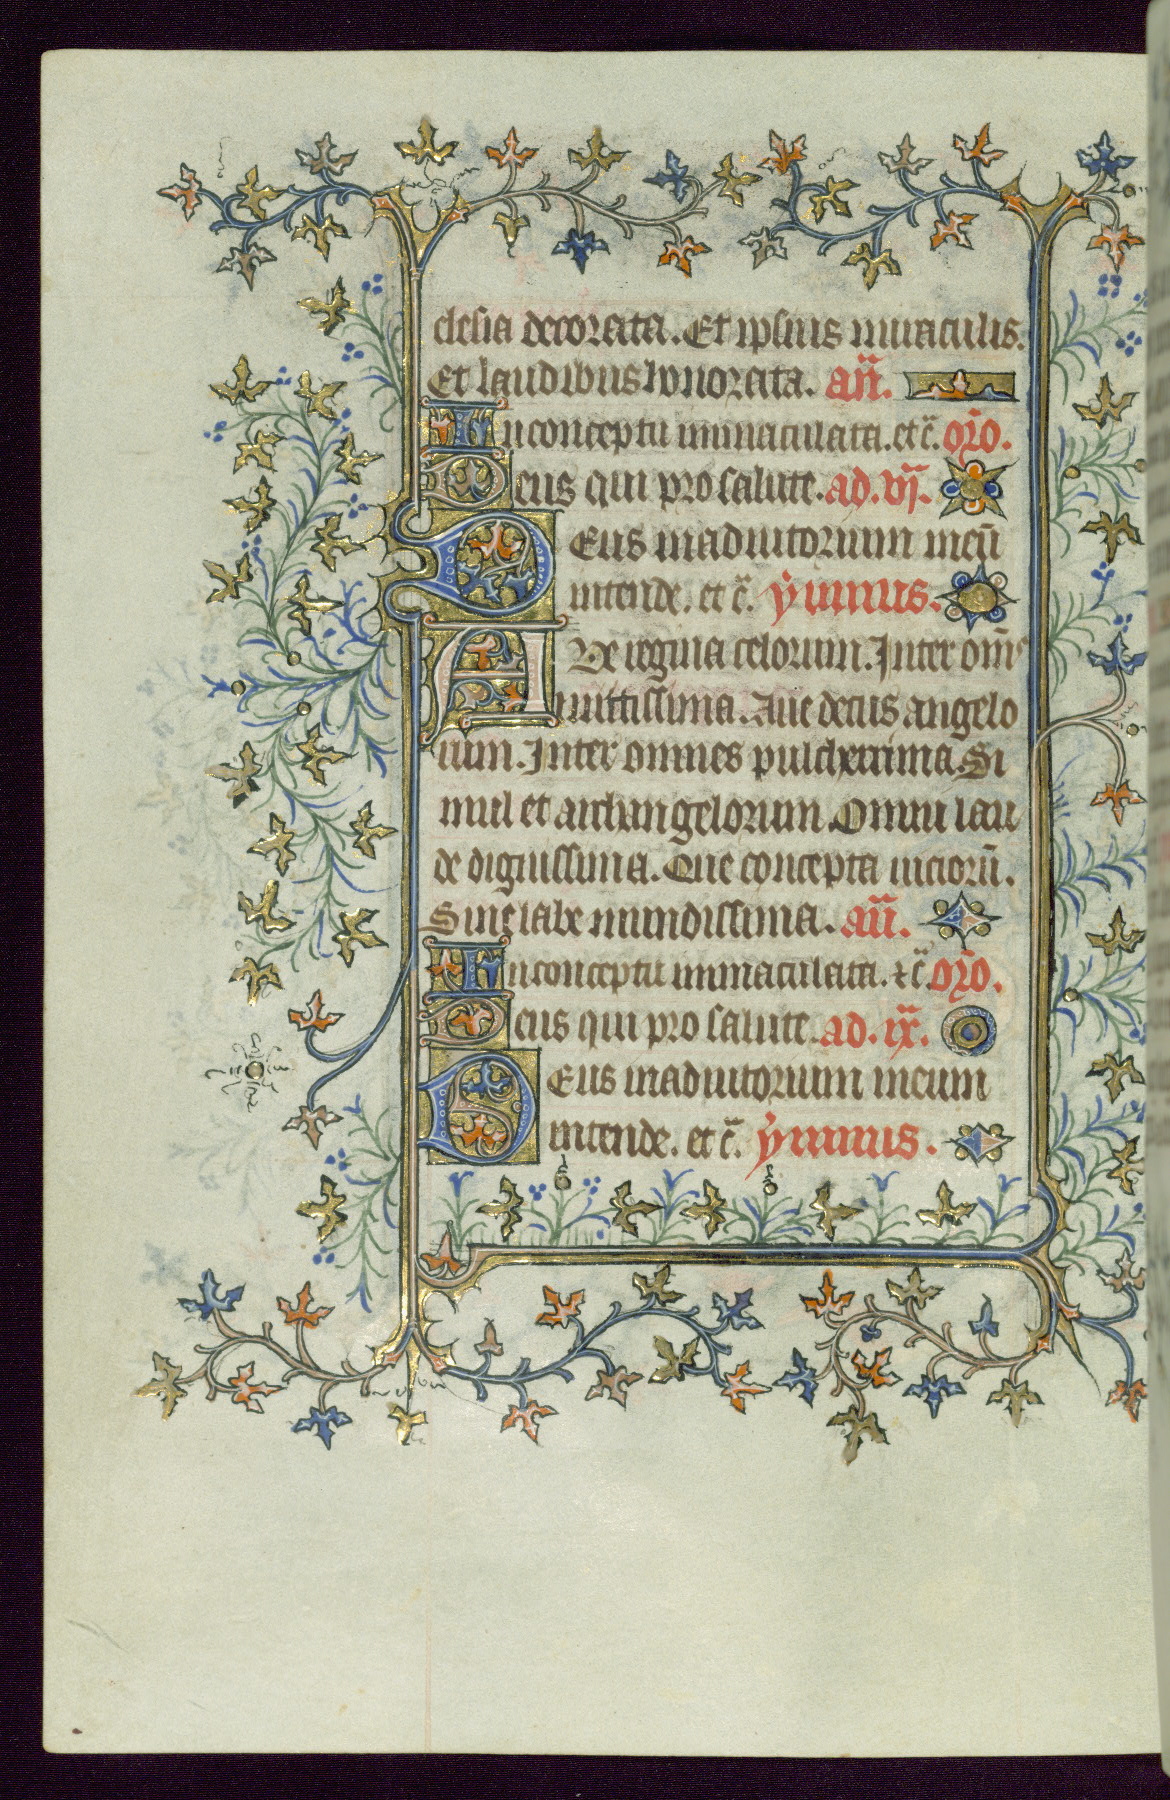 clesia decorata. Et ipsius miraculis.
Et laudibus honorata. añ.
In conceptu immaculata. etc̃. or̃o.
Deus qui pro salute. ad. vj.
DEus in adiutorium meū
intende. et c̃. ẏmnus.
AVe regina celorum. Inter om̄s
mittissima. Aue decus angelo
rum. Inter omnes pulcherrima. Si
mul et archangelorum. Omni lau
de dignissima. Que concepta viciorū.
Sine labe mundissima. añ.
In conceptu immaculata. ⁊c̃. or̃o.
Deus qui pro salute. ad. ix.
DEus in adiutorium meum
intende. et c̃. ẏmnus.